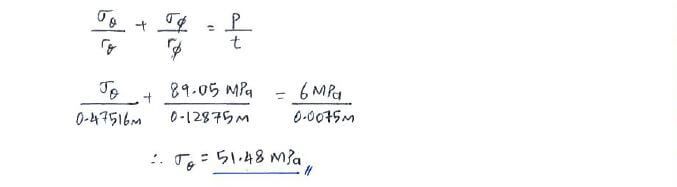 σθ/rθ + σϕ/rϕ = P/t
σθ/0.47516m + 89.05 MPa/0.12875m = 6 MPa/0.0075m
∴ σθ = 51.48 MPa //